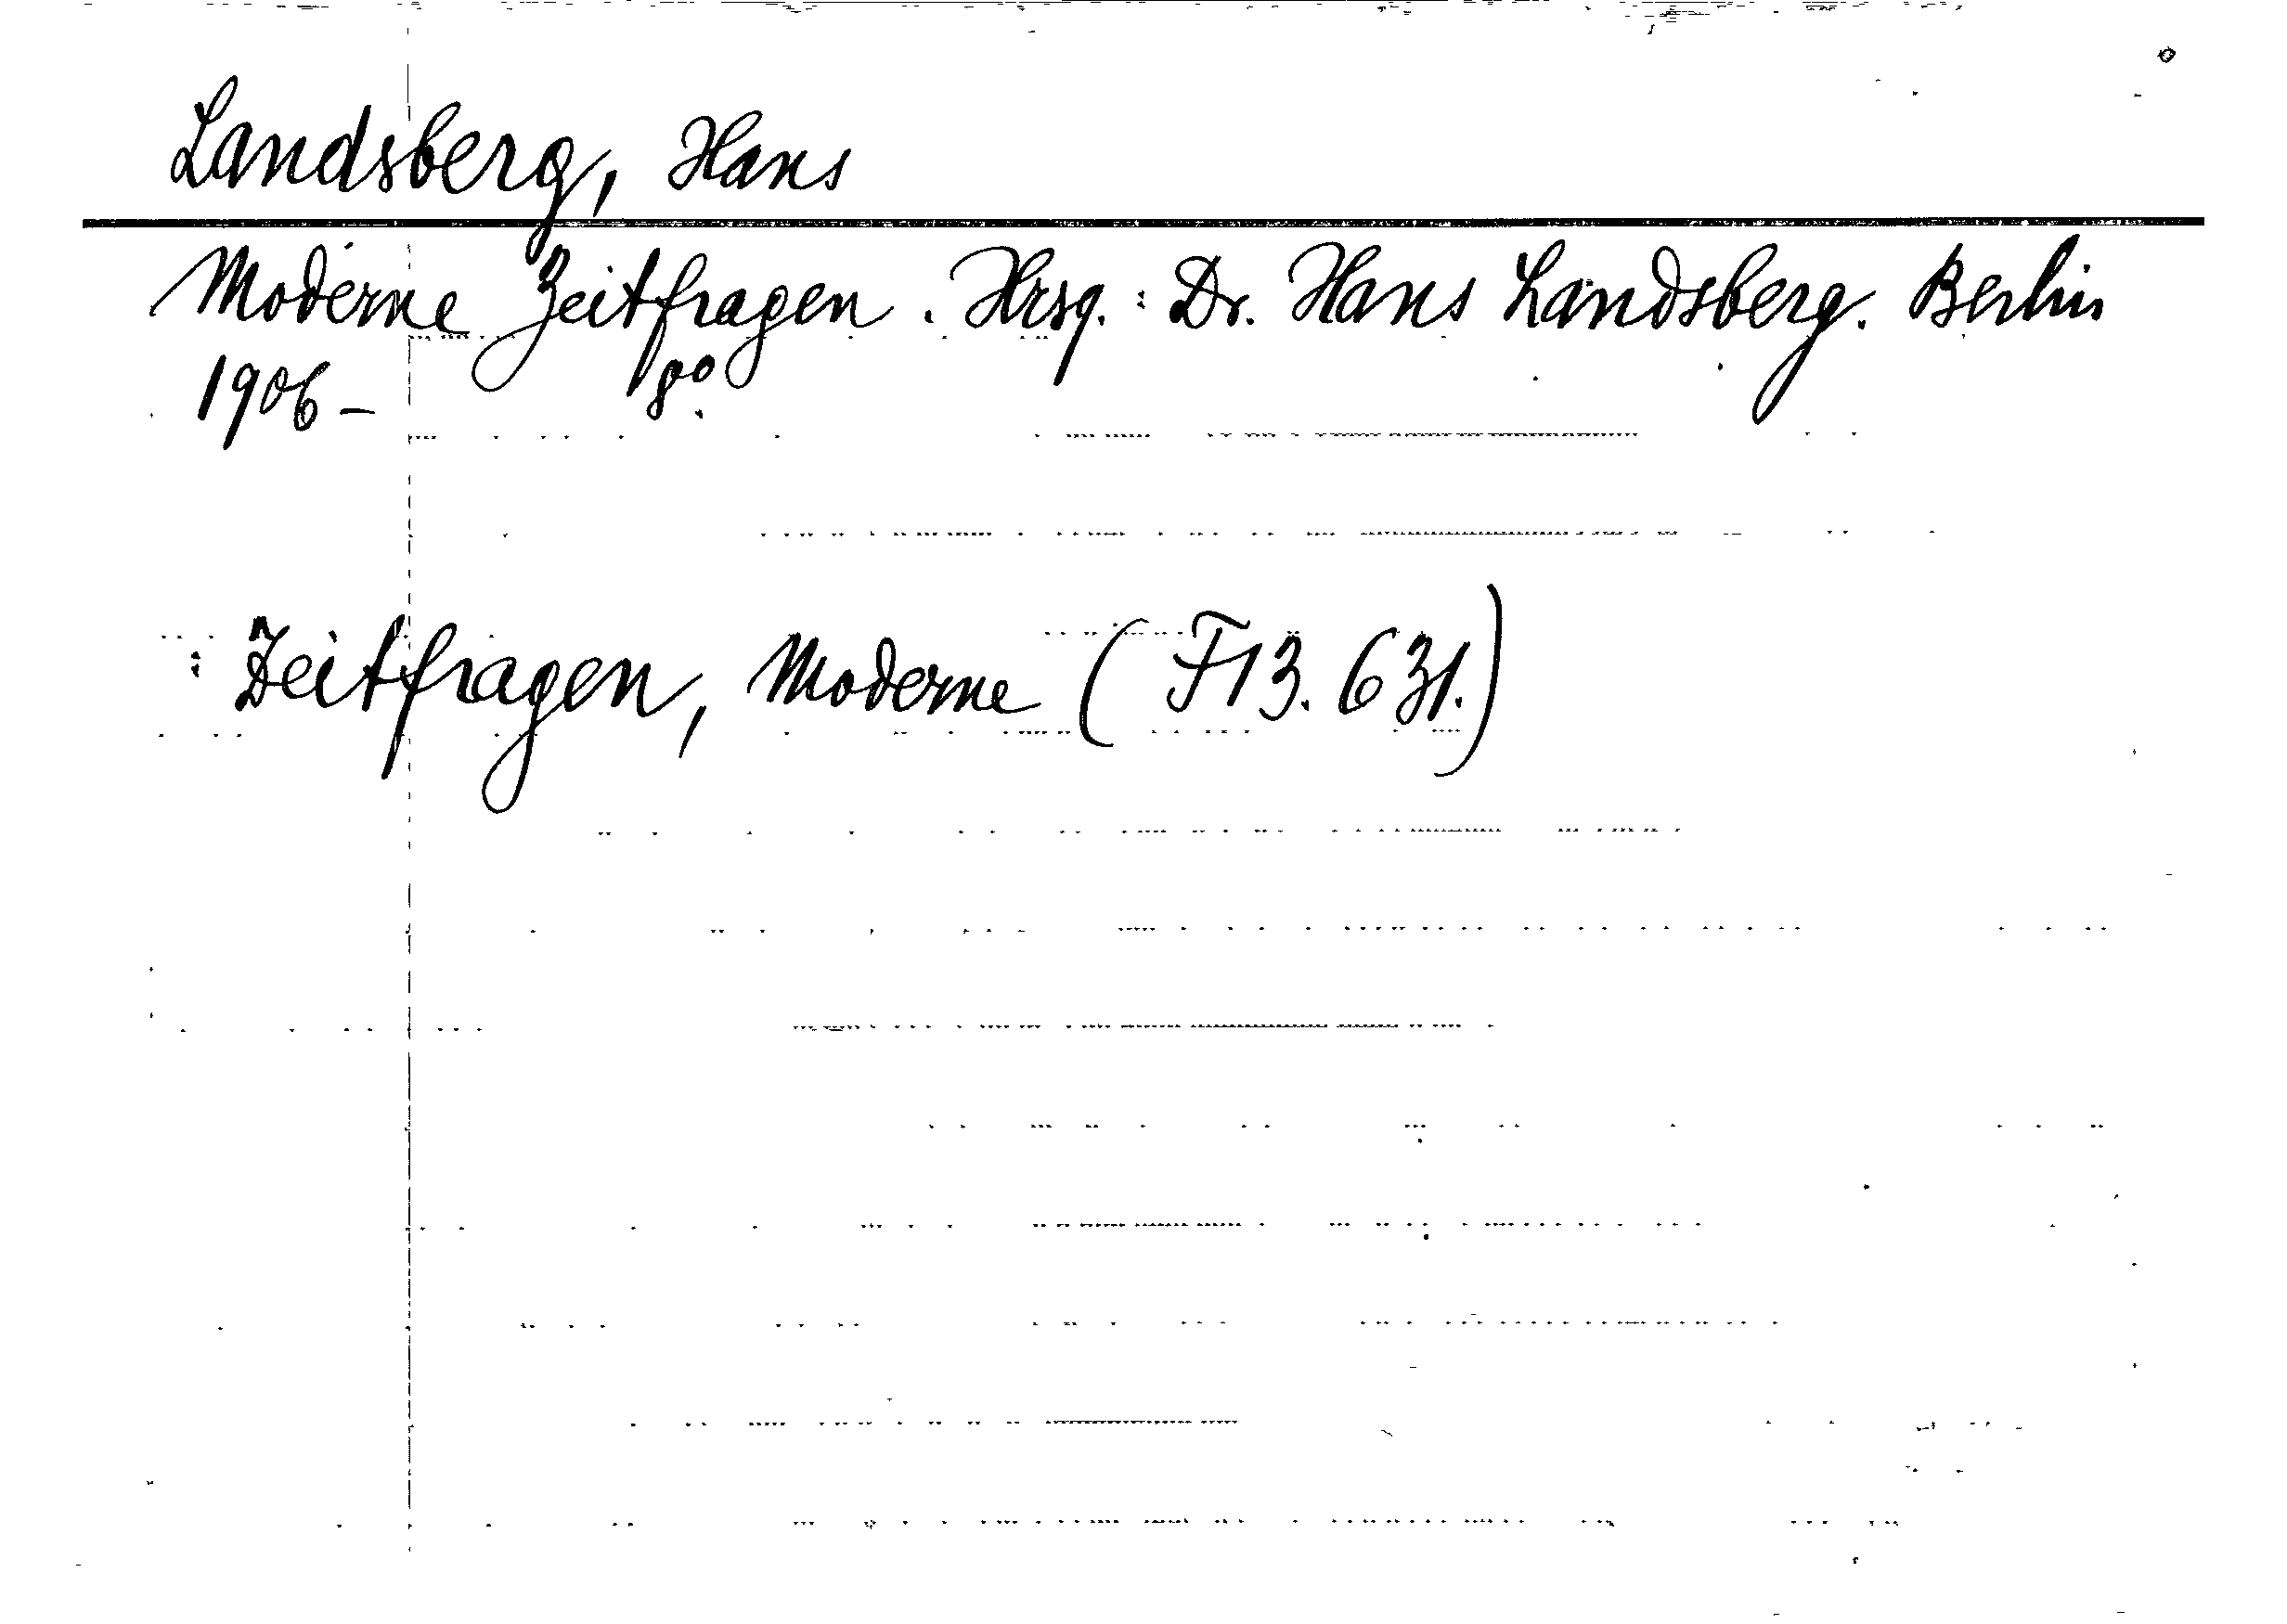 Landsberg, Hans
Moderne Zeitfragen. Hrsg.: Dr. Hans Landsberg. Berlin
1906- 8°.
: Zeitfragen, Moderne (F13.631.)